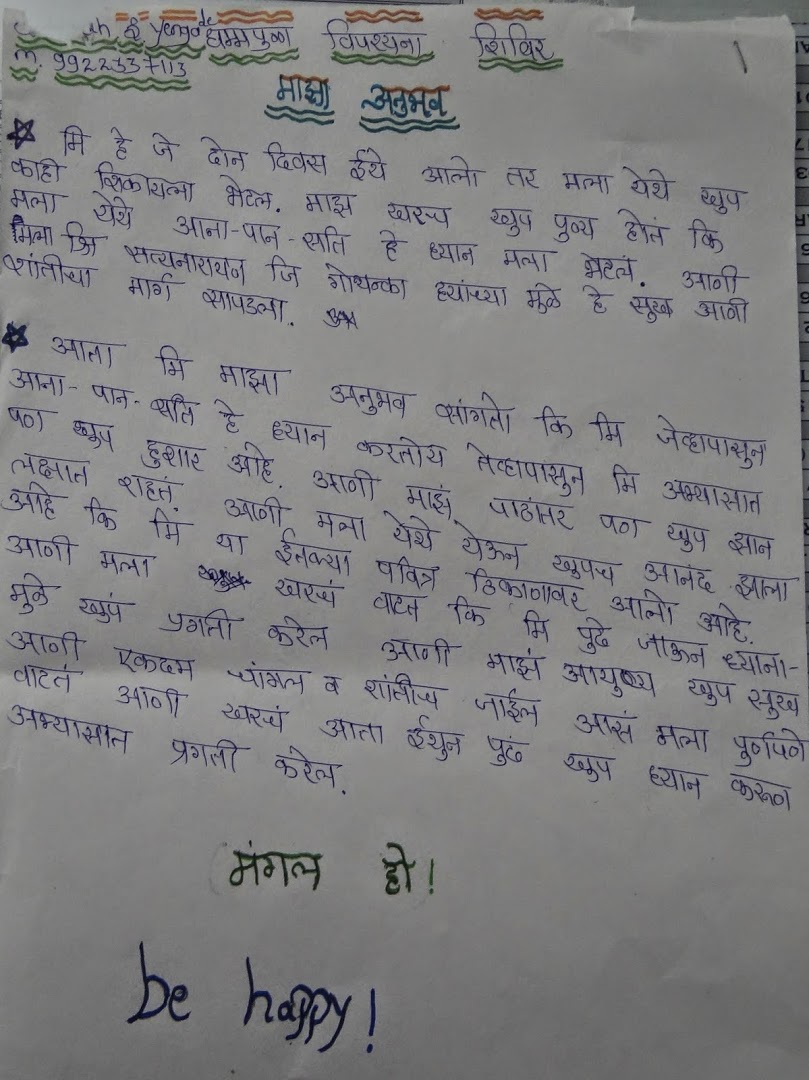 S. Yengde धम्मपुणे विपश्यना शिविर
m. 9922337113
1
माझा अनुभव
मि हे जे दोन दिवस ईथे आलो तर मला येथे खुप
काही शिकायला भेटल. माझ खरच खुप पुन्य होतं कि
मला येथे आना-पान-सति हे ध्यान मला भेटलं. आणी
मला श्रि सत्यनारायन जि गोयन्का ह्यांच्या मुळे हे सुख आणी
शांतीचा मार्ग सापडला.
आता मि माझा अनुभव सांगतो कि मि जेव्हापासुन
आना-पान-सति हे ध्यान करतोय तेव्हापासुन मि अभ्यासात
पण खुप हुशार आहे. आणी माझं पाठांतर पण खुप छान
लक्षात राहतं. आणी मला येथे येऊन खुपच आनंद झाला
आहे कि मि या ईतक्या पवित्र ठिकाणावर आलो आहे.
आणी मला खरचं वाटतं कि मि पुढे जाऊन ध्याना-
मुळे खुपं प्रगती करेल आणी माझं आयुष्य खुप सुख
आणी एकदम चांगल व शांतीच जाईल आसं मला पुर्णपणे
वाटतं आणी खरचं आता ईथुन पुढं खुप ध्यान करून
अभ्यासात प्रगती करेल.
मंगल हो!
be happy!